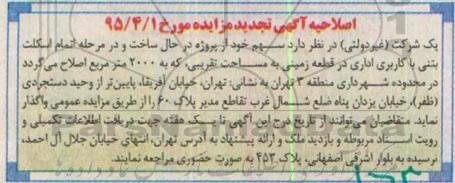 اصلاحیه آگهی تجدید مزایده مورخ ۹۵/۴/۱
یک شرکت (غیردولتی) در نظر دارد سهم خود از پروژه در حال ساخت و در مرحله اتمام اسکلت
بتنی با کاربری اداری در قطعه زمینی به مساحت تقریبی، که به ۲۰۰۰ متر مربع اصلاح می‌گردد
در محدوده شهرداری منطقه ۳ تهران به نشانی: تهران، خیابان آفریقا، پایین‌تر از وحید دستجردی
(ظفر)، خیابان یزدان پناه ضلع شمال غرب تقاطع مدبر پلاک ۶۰ را از طریق مزایده عمومی واگذار
نماید. متقاضیان می‌توانند از تاریخ درج این آگهی تا یک هفته جهت دریافت اطلاعات تکمیلی و
رویت اسناد مربوطه و بازدید ملک و ارائه پیشنهاد به آدرس تهران، انتهای خیابان جلال آل احمد،
نرسیده به بلوار اشرفی اصفهانی، پلاک ۴۵۳ به صورت حضوری مراجعه نمایند.
ParsNamadData